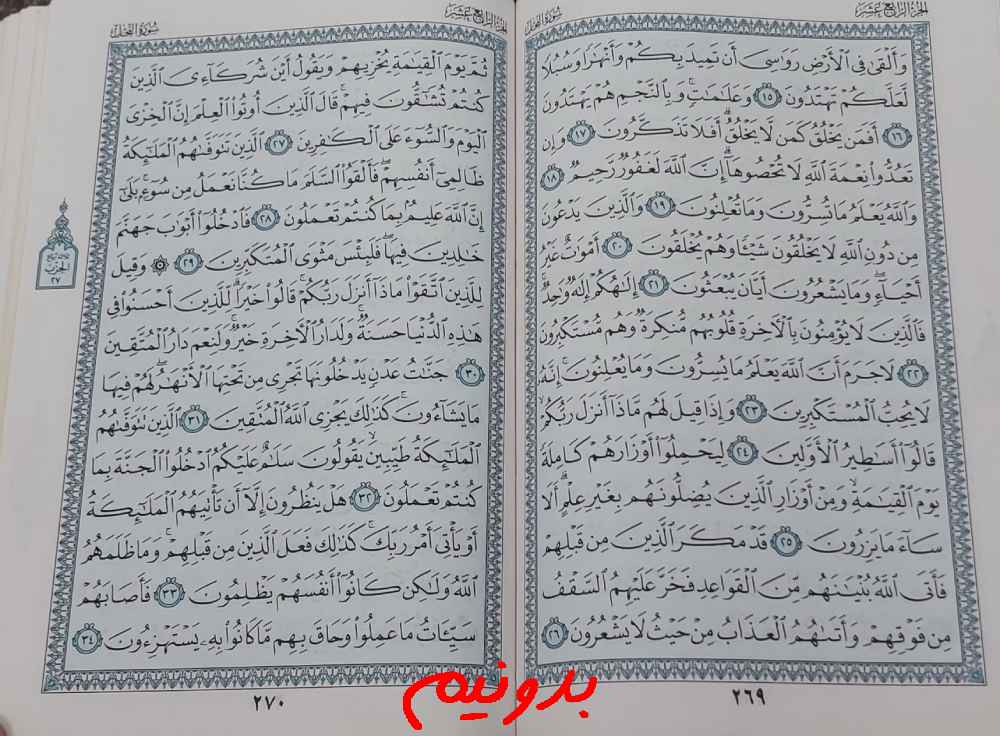 الجزء الرابع عشر
سورة النحل
وَأَلْقَىٰ فِي ٱلْأَرْضِ رَوَٰسِيَ أَن تَمِيدَ بِكُمْ وَأَنْهَٰرًا وَسُبُلًا
لَّعَلَّكُمْ تَهْتَدُونَ ١٥ وَعَلَٰمَٰتٍ وَبِٱلنَّجْمِ هُمْ يَهْتَدُونَ
١٦ أَفَمَن يَخْلُقُ كَمَن لَّا يَخْلُقُ أَفَلَا تَذَكَّرُونَ ١٧ وَإِن
تَعُدُّوا۟ نِعْمَةَ ٱللَّهِ لَا تُحْصُوهَآ إِنَّ ٱللَّهَ لَغَفُورٌ رَّحِيمٌ ١٨
وَٱللَّهُ يَعْلَمُ مَا تُسِرُّونَ وَمَا تُعْلِنُونَ ١٩ وَٱلَّذِينَ يَدْعُونَ
مِن دُونِ ٱللَّهِ لَا يَخْلُقُونَ شَيْـًٔا وَهُمْ يُخْلَقُونَ ٢٠ أَمْوَٰتٌ غَيْرُ
أَحْيَآءٍ وَمَا يَشْعُرُونَ أَيَّانَ يُبْعَثُونَ ٢١ إِلَٰهُكُمْ إِلَٰهٌ وَٰحِدٌ
فَٱلَّذِينَ لَا يُؤْمِنُونَ بِٱلْـَٔاخِرَةِ قُلُوبُهُم مُّنكِرَةٌ وَهُم مُّسْتَكْبِرُونَ
٢٢ لَا جَرَمَ أَنَّ ٱللَّهَ يَعْلَمُ مَا يُسِرُّونَ وَمَا يُعْلِنُونَ إِنَّهُۥ
لَا يُحِبُّ ٱلْمُسْتَكْبِرِينَ ٢٣ وَإِذَا قِيلَ لَهُم مَّاذَآ أَنزَلَ رَبُّكُمْ
قَالُوٓا۟ أَسَٰطِيرُ ٱلْأَوَّلِينَ ٢٤ لِيَحْمِلُوٓا۟ أَوْزَارَهُمْ كَامِلَةً
يَوْمَ ٱلْقِيَٰمَةِ وَمِنْ أَوْزَارِ ٱلَّذِينَ يُضِلُّونَهُم بِغَيْرِ عِلْمٍ أَلَا
سَآءَ مَا يَزِرُونَ ٢٥ قَدْ مَكَرَ ٱلَّذِينَ مِن قَبْلِهِمْ
فَأَتَى ٱللَّهُ بُنْيَٰنَهُم مِّنَ ٱلْقَوَاعِدِ فَخَرَّ عَلَيْهِمُ ٱلسَّقْفُ
مِن فَوْقِهِمْ وَأَتَىٰهُمُ ٱلْعَذَابُ مِنْ حَيْثُ لَا يَشْعُرُونَ ٢٦
٢٦٩
الجزء الرابع عشر
سورة النحل
ثُمَّ يَوْمَ ٱلْقِيَٰمَةِ يُخْزِيهِمْ وَيَقُولُ أَيْنَ شُرَكَآءِيَ ٱلَّذِينَ
كُنتُمْ تُشَٰٓقُّونَ فِيهِمْ قَالَ ٱلَّذِينَ أُوتُوا۟ ٱلْعِلْمَ إِنَّ ٱلْخِزْيَ
ٱلْيَوْمَ وَٱلسُّوٓءَ عَلَى ٱلْكَٰفِرِينَ ٢٧ ٱلَّذِينَ تَتَوَفَّىٰهُمُ ٱلْمَلَٰٓئِكَةُ
ظَالِمِيٓ أَنفُسِهِمْ فَأَلْقَوُا۟ ٱلسَّلَمَ مَا كُنَّا نَعْمَلُ مِن سُوٓءٍ بَلَىٰٓ
إِنَّ ٱللَّهَ عَلِيمٌۢ بِمَا كُنتُمْ تَعْمَلُونَ ٢٨ فَٱدْخُلُوٓا۟ أَبْوَٰبَ جَهَنَّمَ
خَٰلِدِينَ فِيهَا فَلَبِئْسَ مَثْوَى ٱلْمُتَكَبِّرِينَ ٢٩ ۞ وَقِيلَ
لِلَّذِينَ ٱتَّقَوْا۟ مَاذَآ أَنزَلَ رَبُّكُمْ قَالُوا۟ خَيْرًا لِّلَّذِينَ أَحْسَنُوا۟ فِي
هَٰذِهِ ٱلدُّنْيَا حَسَنَةٌ وَلَدَارُ ٱلْـَٔاخِرَةِ خَيْرٌ وَلَنِعْمَ دَارُ ٱلْمُتَّقِينَ
٣٠ جَنَّٰتُ عَدْنٍ يَدْخُلُونَهَا تَجْرِي مِن تَحْتِهَا ٱلْأَنْهَٰرُ لَهُمْ فِيهَا
مَا يَشَآءُونَ كَذَٰلِكَ يَجْزِي ٱللَّهُ ٱلْمُتَّقِينَ ٣١ ٱلَّذِينَ تَتَوَفَّىٰهُمُ
ٱلْمَلَٰٓئِكَةُ طَيِّبِينَ يَقُولُونَ سَلَٰمٌ عَلَيْكُمُ ٱدْخُلُوا۟ ٱلْجَنَّةَ بِمَا
كُنتُمْ تَعْمَلُونَ ٣٢ هَلْ يَنظُرُونَ إِلَّآ أَن تَأْتِيَهُمُ ٱلْمَلَٰٓئِكَةُ
أَوْ يَأْتِيَ أَمْرُ رَبِّكَ كَذَٰلِكَ فَعَلَ ٱلَّذِينَ مِن قَبْلِهِمْ وَمَا ظَلَمَهُمُ
ٱللَّهُ وَلَٰكِن كَانُوٓا۟ أَنفُسَهُمْ يَظْلِمُونَ ٣٣ فَأَصَابَهُمْ
سَيِّـَٔاتُ مَا عَمِلُوا۟ وَحَاقَ بِهِم مَّا كَانُوا۟ بِهِۦ يَسْتَهْزِءُونَ ٣٤
الحزب
٢٧
٢٧٠
بدونیم